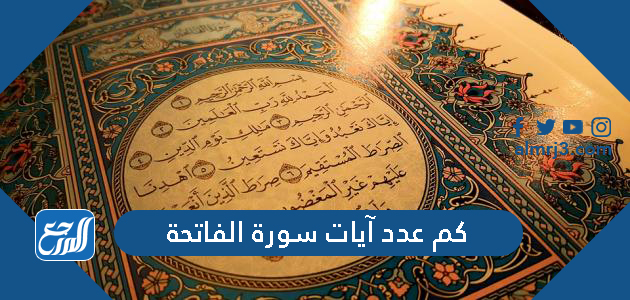 بِسْمِ اللَّهِ الرَّحْمَٰنِ الرَّحِيمِ ١
الْحَمْدُ لِلَّهِ رَبِّ الْعَالَمِينَ ٢
الرَّحْمَٰنِ الرَّحِيمِ ٣ مَالِكِ يَوْمِ الدِّينِ ٤
إِيَّاكَ نَعْبُدُ وَإِيَّاكَ نَسْتَعِينُ ٥ اهْدِنَا
الصِّرَاطَ الْمُسْتَقِيمَ ٦ صِرَاطَ الَّذِينَ
عَلَيْهِمْ غَيْرِ الْمَغْضُوبِ
almrj3.com
كم عدد آيات سورة الفاتحة
المرجع